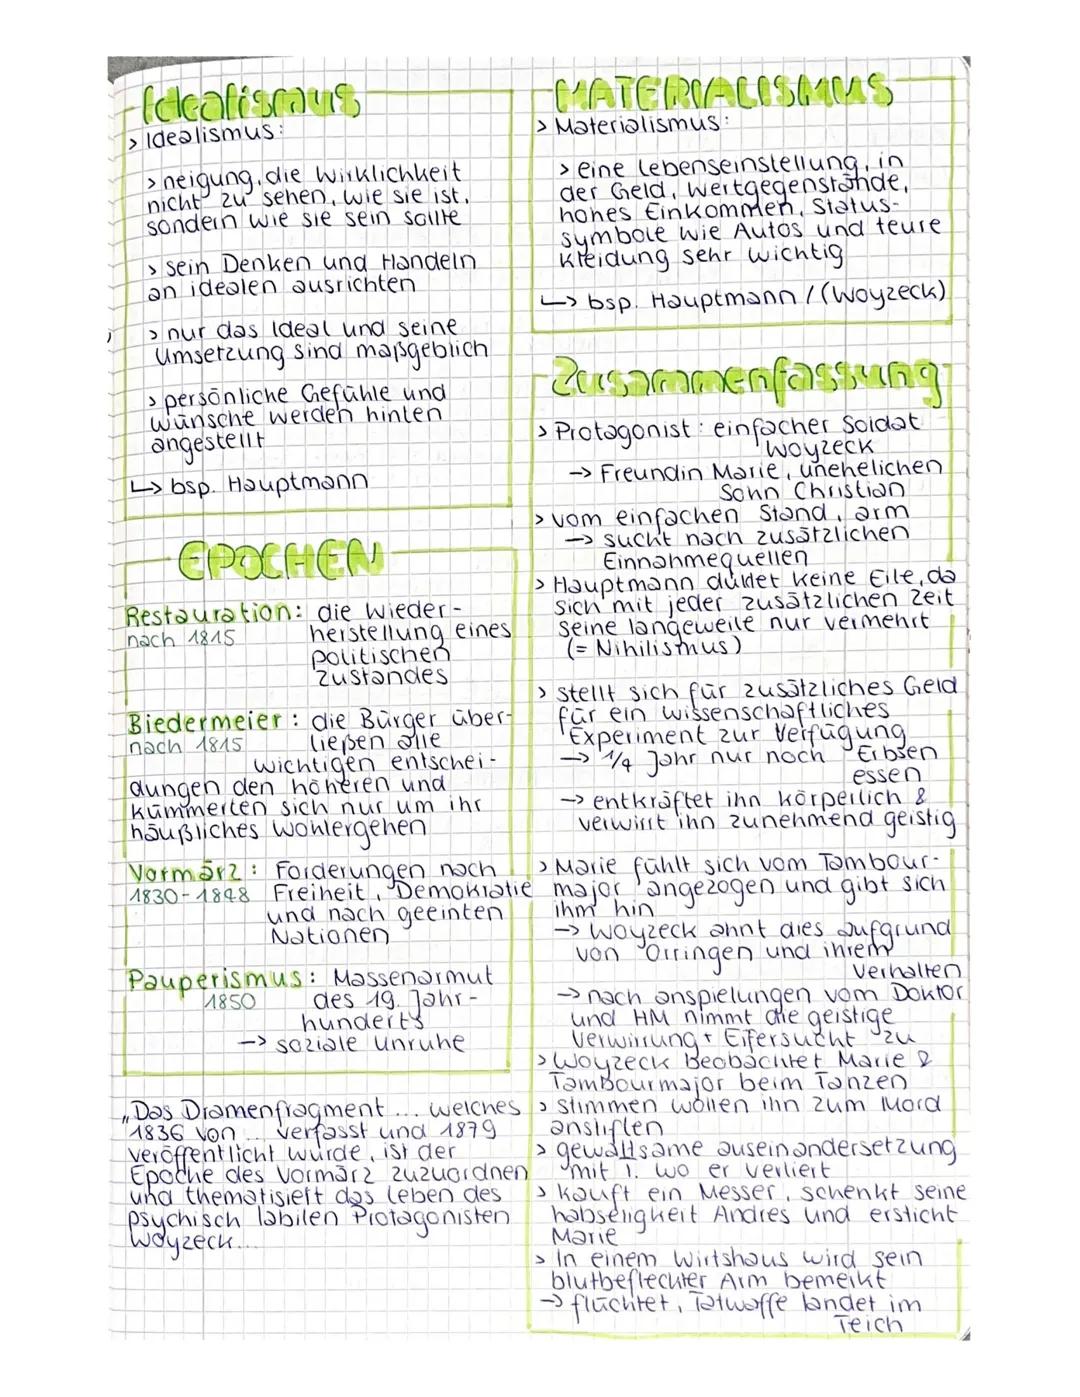 Idealismus
> Idealismus:
> neigung, die Wirklichkeit
nicht zu sehen, wie sie ist,
sondern wie sie sein sollte
> sein Denken und Handeln
an idealen ausrichten
> nur das Ideal und seine
Umsetzung sind maßgeblich
> persönliche Gefühle und
wünsche werden hinten
angestellt
↳ bsp. Hauptmann
EPOCHEN
Restauration: die Wieder-
nach 1815 herstellung eines
politischen
Zustandes
Biedermeier: die Bürger über-
nach 1815 ließen alle
wichtigen entschei-
dungen den höheren und
kümmerten sich nur um ihr
häußliches Wohlergehen
Vormärz: Forderungen nach
1830-1848 Freiheit, Demokratie
und nach geeinten
Nationen
Pauperismus: Massenarmut
1850 des 19. Jahr-
hunderts
-> soziale Unruhe
„Das Dramenfragment ... welches
1836 von ... verfasst und 1879
veröffentlicht wurde, ist der
Epoche des Vormärz zuzuordnen
und thematisiert das leben des
psychisch labilen Protagonisten
Woyzeck...
MATERIALISMUS
> Materialismus:
> eine Lebenseinstellung, in
der Geld, Wertgegenstände,
hohes Einkommen, Status-
symbole wie Autos und teure
kleidung sehr wichtig
↳ bsp. Hauptmann / (Woyzeck)
Zusammenfassung
> Protagonist: einfacher Soldat
Woyzeck
-> Freundin Marie, unehelichen
Sohn Christian
> vom einfachen Stand, arm
-> sucht nach zusätzlichen
Einnahmequellen
> Hauptmann duldet keine Eile, da
sich mit jeder zusätzlichen Zeit
seine langeweile nur vermehrt
(= Nihilismus)
> stellt sich für zusätzliches Geld
für ein wissenschaftliches
Experiment zur Verfügung
-> 1/4 Jahr nur noch Erbsen
essen
-> entkräftet ihn körperlich &
verwirrt ihn zunehmend geistig
> Marie fühlt sich vom Tambour-
major angezogen und gibt sich
ihm hin
-> Woyzeck ahnt dies aufgrund
von Orringen und ihrem
Verhalten
-> nach anspielungen vom Doktor
und HM nimmt die geistige
Verwirrung + Eifersucht zu
> Woyzeck beobachtet Marie &
Tambourmajor beim Tanzen
> stimmen wollen ihn zum Mord
anstiften
> gewaltsame auseinandersetzung
mit T. wo er verliert
> kauft ein Messer, schenkt seine
habseligkeit Andres und ersticht
Marie
> In einem Wirtshaus wird sein
blutbefleckter Arm bemerkt
-> flüchtet, Tatwaffe landet im
Teich